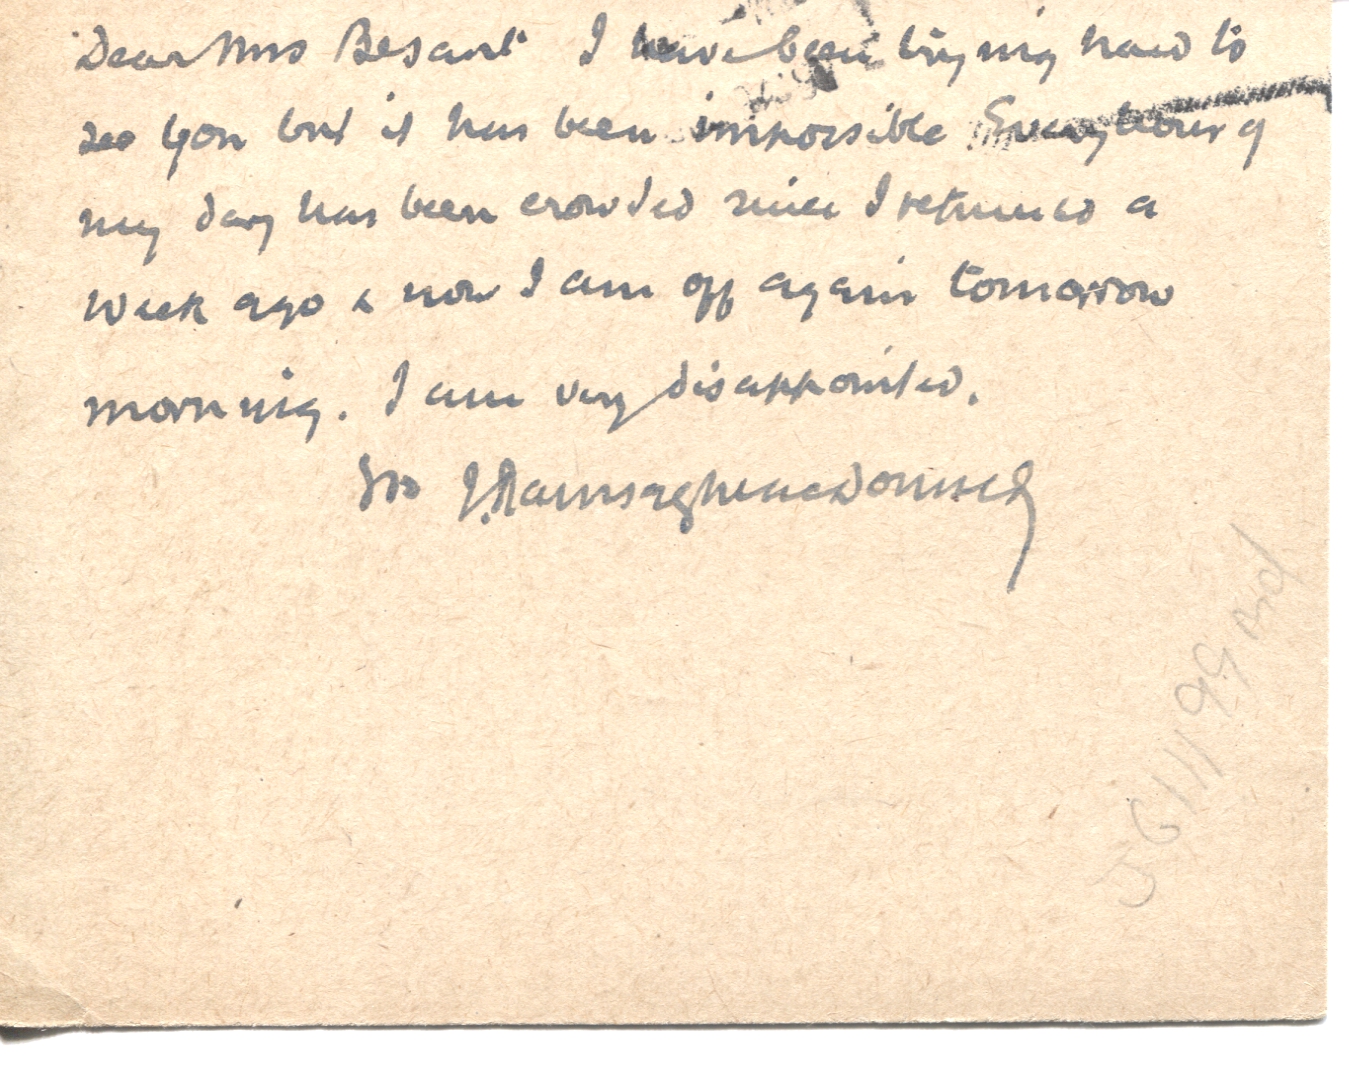 Dear Mrs Besant I have been trying hard to
see you but it has been impossible Every hour of
my day has been crowded since I returned a
week ago & now I am off again tomorrow
morning. I am very disappointed.
J. Ramsay MacDonald